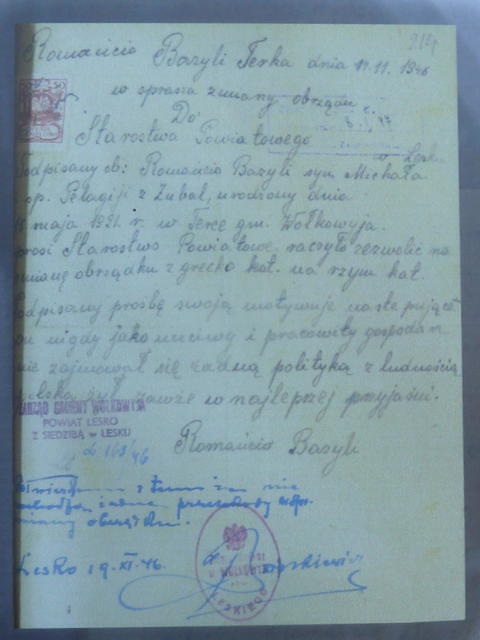 Romańcio Bazyli Terka dnia 14.11. 1946
w sprawie zmiany obrządku
Do
Starostwa Powiatowego
w Lesku
Podpisany ob: Romańcio Bazyli syn Michała
i sp. Pelagiji z Zubal, urodzony dnia
maja 1921. r. w Terce gm. Wołkowyja.
prosi Starostwo Powiatowe, raczyło zezwolić na
zmianę obrządku z grecko kat. na rzym kat.
Podpisany prośbę swoją motywuje następująco
on nigdy jako uczciwy i pracowity gospodarz
nie zajmował się żadną polityką z ludnością
polską żył zawsze w najlepszej przyjaźni.
ZARZĄD GMINY WOŁKOWYJA
POWIAT LESKO
Z SIEDZIBĄ w LESKU
163/46
Romańcio Bazyli
nie
zachodzą żadne przeszkody
zmiany obrządku.
Lesko 19.XI.46.